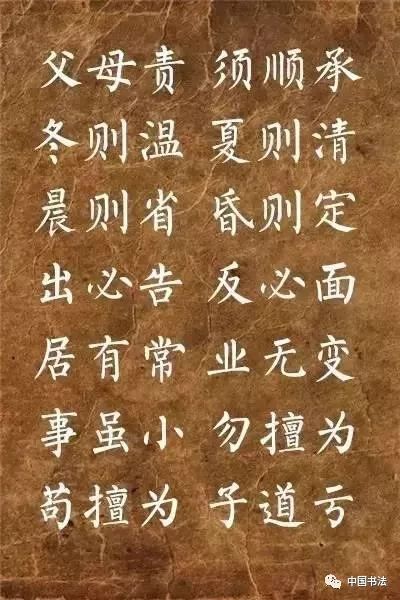 父母责 须顺承
冬则温 夏则清
晨则省 昏则定
出必告 反必面
居有常 业无变
事虽小 勿擅为
苟擅为 子道亏
中国书法